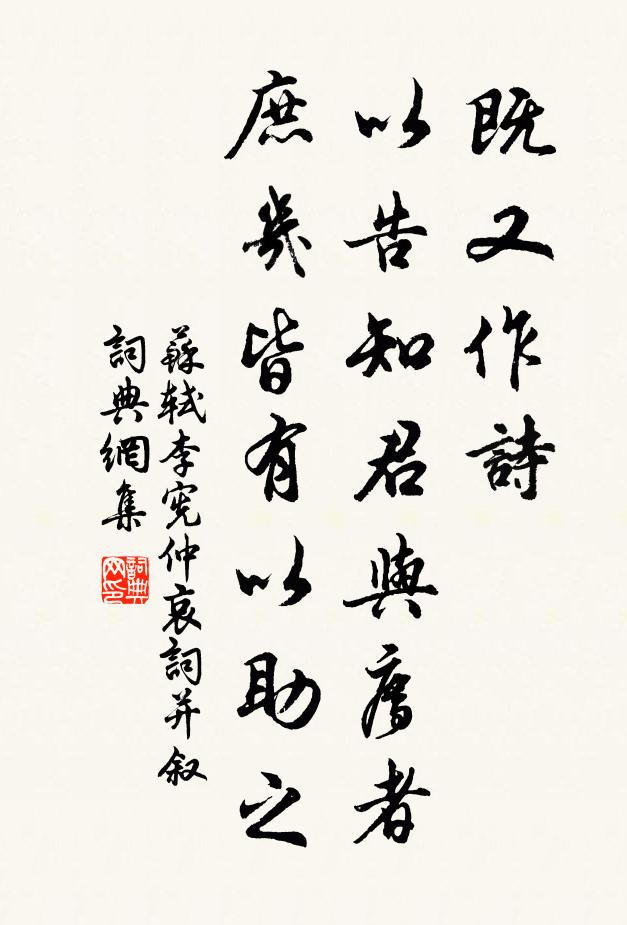 既又作詩
以告知君與廌者
庶幾皆有以助之
蘇軾李憲仲哀詞并叙
詞典網集
詞典网印